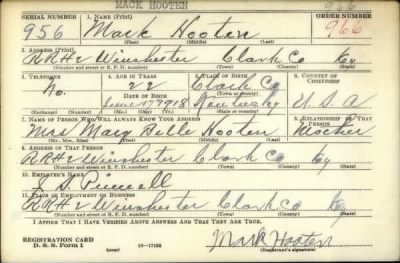 MARK HOOTEN
956
SERIAL NUMBER 1. NAME (Print) ORDER NUMBER
956 Mark Hooten 966
(First) (Middle) (Last)
2. ADDRESS (Print)
RR#2 Winchester Clark Co Ky
(Number and street or R. F. D. number) (Town) (County) (State)
3. TELEPHONE 4. AGE IN YEARS 5. PLACE OF BIRTH 6. COUNTRY OF CITIZENSHIP
No. 22 Clark Co
DATE OF BIRTH (Town or county)
June 1918 Kentucky U. S. A
(Exchange) (Number) (Mo.) (Day) (Yr.) (State or country)
7. NAME OF PERSON WHO WILL ALWAYS KNOW YOUR ADDRESS 8. RELATIONSHIP OF THAT PERSON
Mrs Mary Belle Hooten Mother
(Mr., Mrs., Miss) (First) (Middle) (Last)
9. ADDRESS OF THAT PERSON
RR#2 Winchester Clark Co Ky
(Number and street or R. F. D. number) (Town) (County) (State)
10. EMPLOYER'S NAME
11. PLACE OF EMPLOYMENT OR BUSINESS
RR#2 Winchester Clark Co Ky
(Number and street or R. F. D. number) (Town) (County) (State)
I AFFIRM THAT I HAVE VERIFIED ABOVE ANSWERS AND THAT THEY ARE TRUE.
REGISTRATION CARD
D. S. S. Form 1 (over) 16—17105 Mark Hooten
(Registrant's signature)